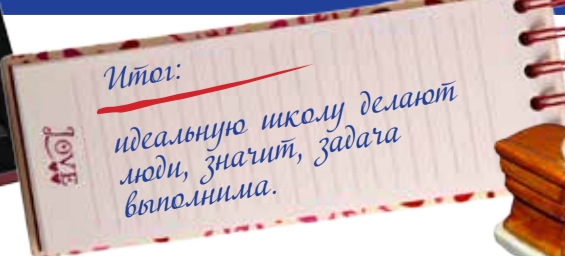 Итог:
идеальную школу делают
люди, значит, задача
выполнима.
LOVE